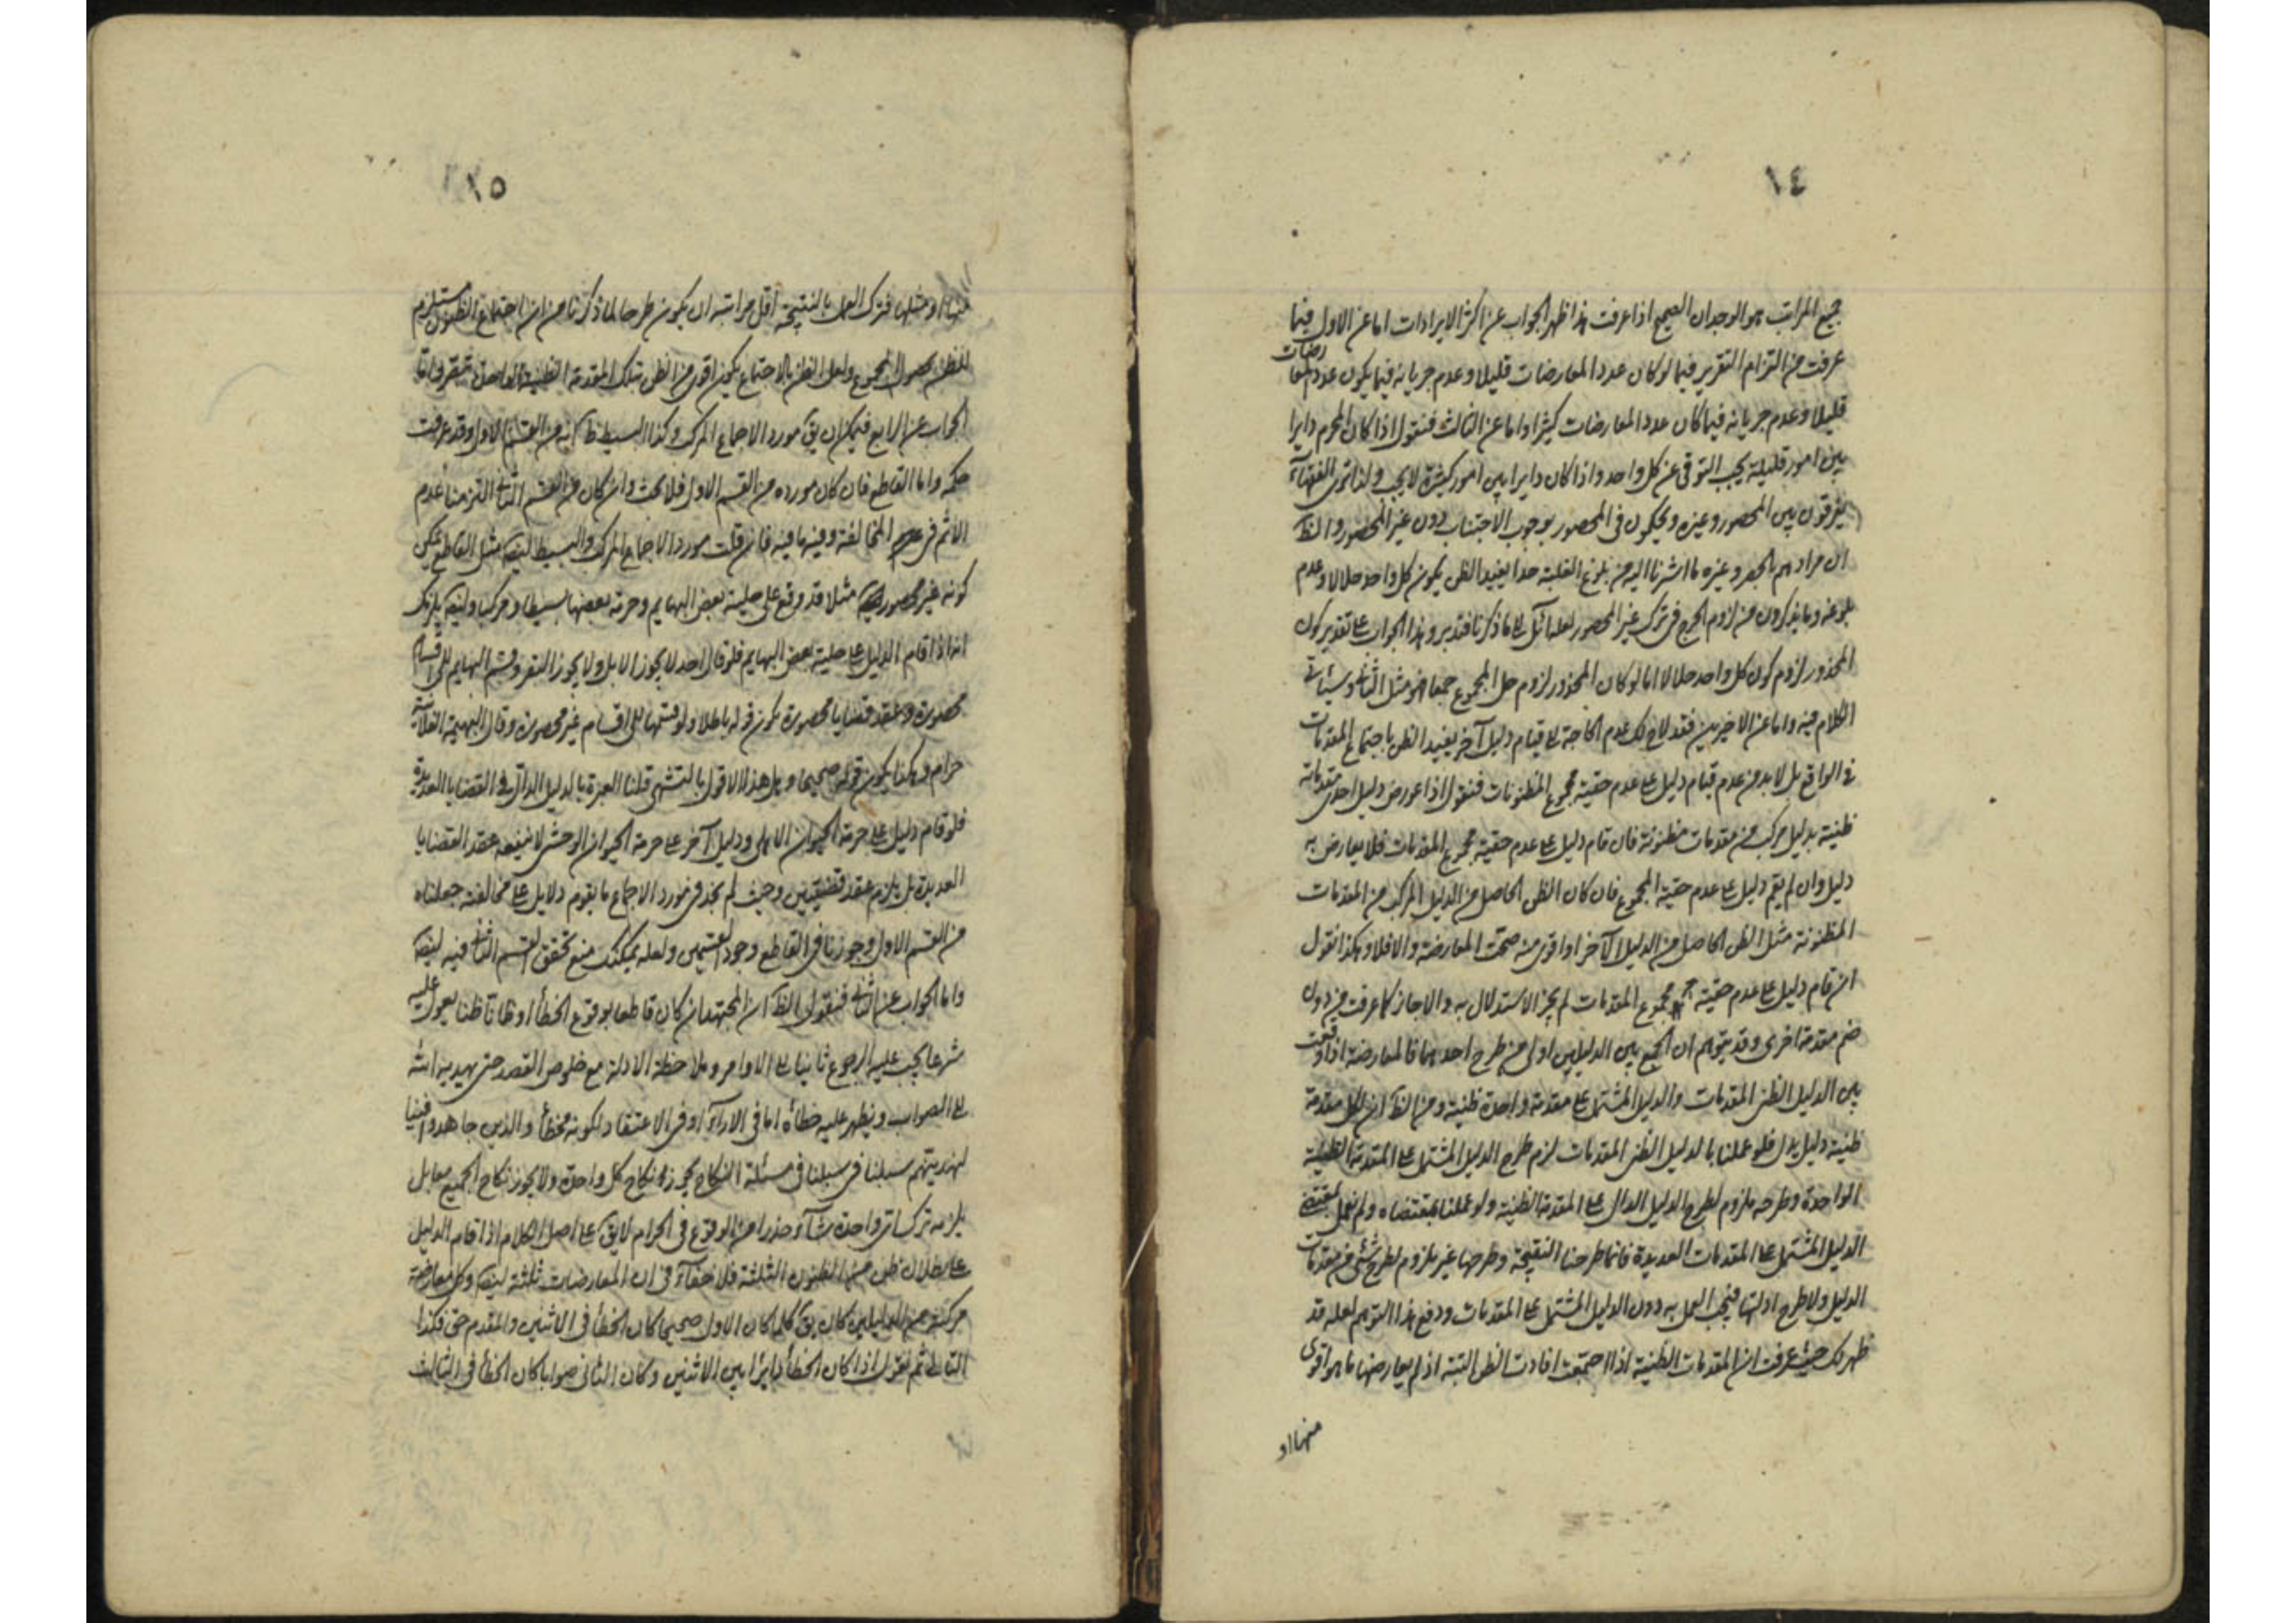 ١٤
جميع المراتب هو الوجدان الصحيح اذا عرفت هذا ظهر الجواب عن اكثر الايرادات اما عن الاول فيما
عرفت من التزام التقرير فيما لو كان عدد المعارضات قليلا وعدم جريانه فيما يكون عدد المعارضات
قليلا وعدم جريانه فيما كان عدد المعارضات كثيرا واما عن الثالث فنقول اذا كان المحرم دايرا
بين امور قليلة يجب التوقى عن كل واحد واذا كان دايرا بين امور كثيرة لا يجب ولذا ترى الفقهآء
يفرقون بين المحصور وغيره ويحكمون فى المحصور بوجوب الاجتناب دون غير المحصور والظ
ان مرادهم بالحصر وغيره ما اشرنا اليه من بلوغ القلية حدا يفيد الظن بكون كل واحد حلالا وعدم
بلوغه وما يذكرون من لزوم الحرج فى ترك غير المحصور لعله آئل الى ما ذكرنا فتدبر وهذا الجواب على تقدير كون
المحذور لزوم كون كل واحد حلالا اما لو كان المحذور لزوم حل المجموع جمعا فهو مثل الثانى وسيأتى
الكلام فيه واما عن الاخيرين فقد لاح لك عدم الحاجة الى قيام دليل آخر يفيد الظن باجتماع المقدمات
فى الواقع بل لا بد من عدم قيام دليل على عدم حقية مجموع المظنونات فنقول اذا عورض دليل احدى مقدماته
ظنية بدليل مركب من مقدمات مظنونة فان قام دليل على عدم حقية مجموع المقدمات فلا يعارض به
دليل وان لم يقم دليل على عدم حقية المجموع فان كان الظن الحاصل من الدليل المركب من المقدمات
المظنونة مثل الظن الحاصل من الدليل الآخر او اقوى منه صحت المعارضة والا فلا وهكذا نقول
ان قام دليل على عدم حقية مجموع المقدمات لم يجز الاستدلال به والا جاز كما عرفت من دون
ضم مقدمة اخرى وقد يتوهم ان الجمع بين الدليلين اولى من طرح احدهما فالمعارضة اذا وقعت
بين الدليل الظنى المقدمات والدليل المشتمل على مقدمة واحدة ظنية ومن الظ ان لكل مقدمة
ظنية دليل يدل فلو عملنا بالدليل الظنى المقدمات لزم طرح الدليل المشتمل على المقدمة الظنية
الواحدة وطرحه ملزوم لطرح الدليل الدال على المقدمة الظنية ولو عملنا بمقتضاه ولم نعمل بمقتضى
الدليل المشتمل على المقدمات العديدة فانما طرحنا النتيجة وطرحها غير ملزوم لطرح شئ من مقدمات
الدليل ولا طرح ادلتها فيجب العمل به دون الدليل المشتمل على المقدمات ودفع هذا التوهم لعله قد
ظهر لك حيث عرفت ان المقدمات الظنية اذا اجتمعت افادت الظن البتة اذ لم يعارضها ما هو اقوى
منها او
١٥
منها او مثلها فترك العمل بالنتيجة اقل مراتبه ان يكون طرحا لما ذكرنا من ان اجتماع الظنون مستلزم
للظن بحصول المجموع ولعل الظن بالاجتماع يكون اقوى من الظن بتلك المقدمة الظنية واما
الجواب عن الرابع فيمكن ان يق مورد الاجماع المركب وكذا البسيط ظ انه من القسم الاول وقد عرفت
حكمه واما القاطع فان كان مورده من القسم الاول فلا بحث وان كان من القسم الثانى التزمنا عدم
الاثم فى المخالفة وفيه ما فيه فان قلت مورد الاجماع المركب والبسيط ايضا مثل القاطع يمكن
كونه غير محصور مثلا قد وقع على حلية بعض البهايم وحرمة بعضها بسيطا ومركبا وايضا يلزمك
انه اذا قام الدليل على حلية بعض البهايم فلو قال احد لا يجوز الابل ولا يجوز البقر وقسم البهايم الى اقسام
محصورة وعقد قضايا محصورة يكون قوله باطلا ولو قسمها الى اقسام غير محصورة وقال البهيمة الفلانية
حرام وهكذا يكون قوله صحيحا وهل هذا الا قول بالتشهى قلنا العبرة بالدليل الدال فى القضايا العديدة
فلو قام دليل على حرمة الحيوان الاهلى ودليل آخر على حرمة الحيوان الوحشى لا ينفعه عقد القضايا
العديدة بل يلزم عقد قضيتين وحيث لم نجد فى مورد الاجماع ما يقوم دلايل على مخالفته جعلناه
من القسم الاول وجوزنا فى القاطع وجود القسمين ولعله يمكنك منع تحقق القسم الثانى فيه ايضا
واما الجواب عن الثانى فنقول الظ ان المجتهد ان كان قاطعا بوقوع الخطأ او ظانا ظنا يعول عليه
شرعا يجب عليه الرجوع ثانيا الى الاوامر وملاحظة الادلة مع خلوص القصد حتى يهديه الله
الى الصواب ويظهر عليه خطأه اما فى الارآء او فى الاعتقاد لكونه مخطأ والذين جاهدوا فينا
لنهدينهم سبلنا فى مسئلة النكاح يجوز نكاح كل واحدة ولا يجوز نكاح الجميع معا بل
يلزمه ترك اى واحدة شآء حذرا من الوقوع فى الحرام لا يق على اصل الكلام اذا قام الدليل
على بطلان ظن من الظنون الثلثة فلا خفآء فى ان المعارضات ثلثة ايضا وكل معارضة
مركبة من الدليلين كان يق كلما كان الاول صحيحا كان الخطأ فى الاثنين والمقدم حق فكذا
التالى ثم نقول اذا كان الخطأ دايرا بين الاثنين وكان الثانى صوابا كان الخطأ فى الثالث